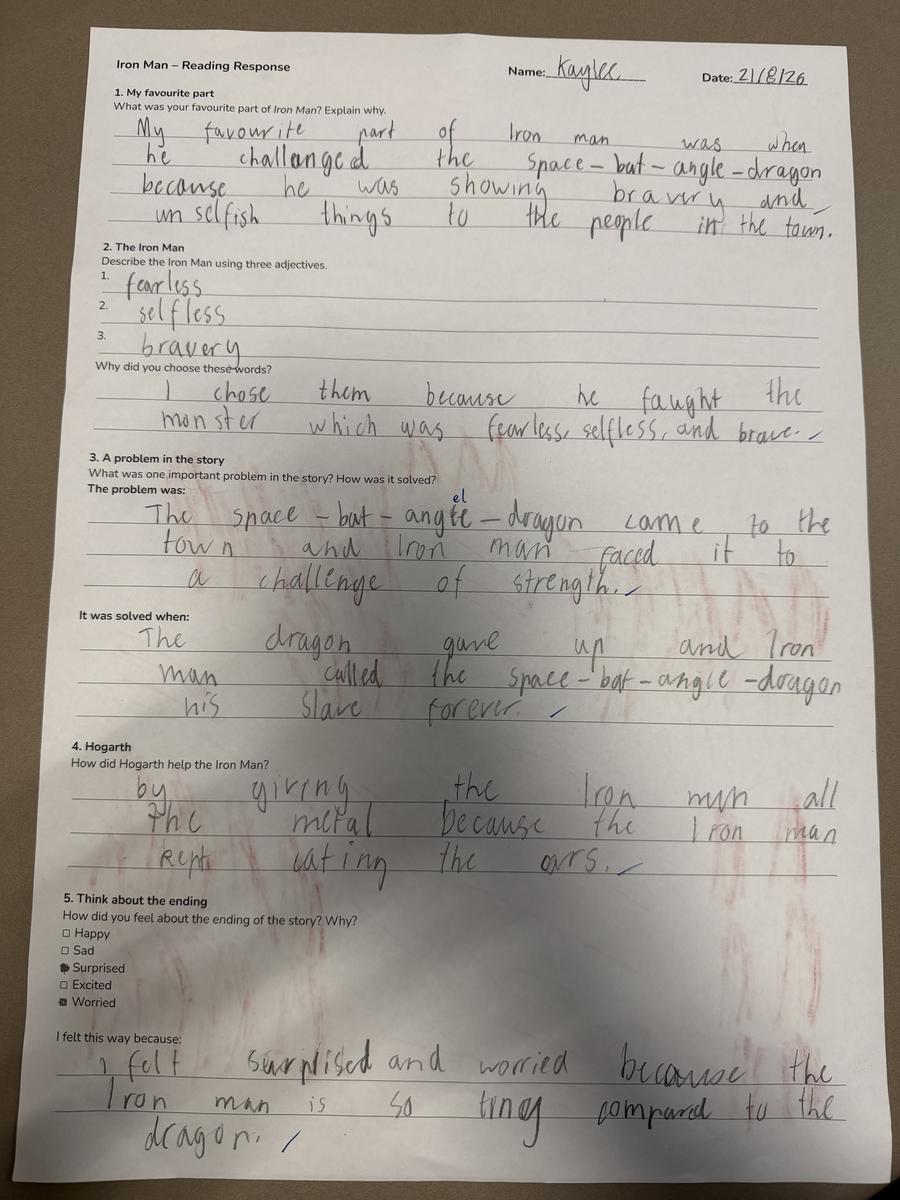 Iron Man – Reading Response
Name: Kaylee
Date: 21/8/26
1. My favourite part
What was your favourite part of Iron Man? Explain why.
My favourite part of Iron man was when
he challanged the space-bat-angle-dragon
because he was showing bravery and
un selfish things to the people in the town.
2. The Iron Man
Describe the Iron Man using three adjectives.
1. fearless
2. selfless
3. bravery
Why did you choose these words?
I chose them because he faught the
monster which was fearless, selfless, and brave.
3. A problem in the story
What was one important problem in the story? How was it solved?
The problem was:
el
The space-bat-angle-dragon came to the
town and Iron man faced it to
a challenge of strength.
It was solved when:
The dragon gave up and Iron
man called the space-bat-angle-dragon
his slave forever.
4. Hogarth
How did Hogarth help the Iron Man?
by giving the Iron man all
the metal because the Iron man
kept eating the cars.
5. Think about the ending
How did you feel about the ending of the story? Why?
Happy
Sad
Surprised
Excited
Worried
I felt this way because:
I felt surplised and worried because the
Iron man is so tiney compared to the
dragon.